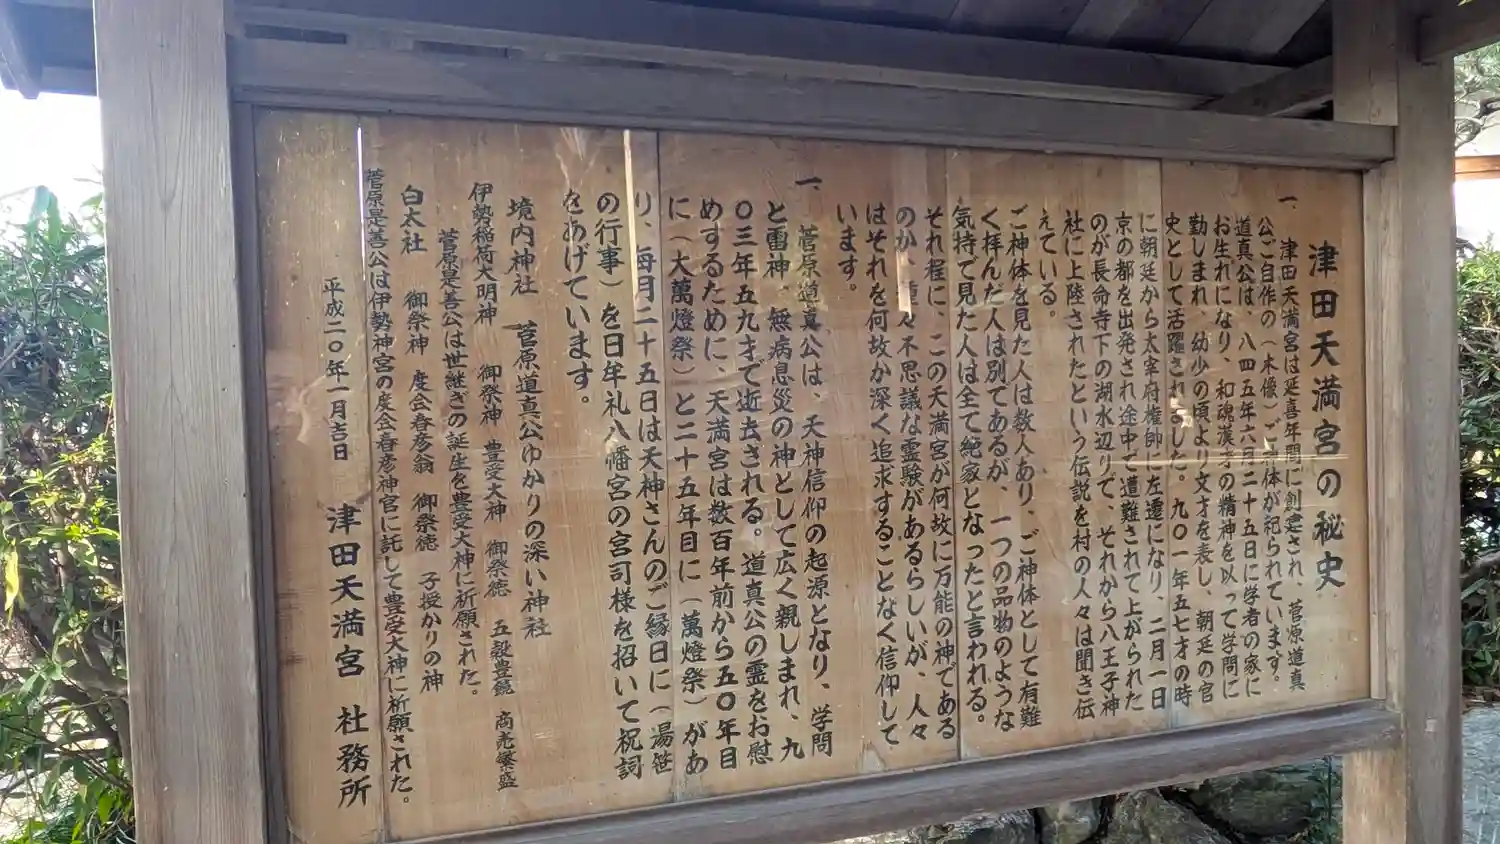 津田天満宮の秘史
一、津田天満宮は延喜年間に創建され、菅原道真
公ご自作の（木像）ご神体が祀られています。
道真公は、八四五年六月二十五日に学者の家に
お生れになり、和魂漢才の精神を以って学問に
勤しまれ、幼少の頃より文才を表し、朝廷の官
史として活躍されました。九〇一年五七才の時
に朝廷から太宰府権帥に左遷になり、二月一日
京の都を出発され途中で遭難されて上がられた
のが長命寺下の湖水辺りで、それから八王子神
社に上陸されたという伝説を村の人々は聞き伝
えている。
ご神体を見た人は数人あり、ご神体として有難
く拝んだ人は別てあるが、一つの品物のような
気持で見た人は全て絶家となったと言われる。
それ程に、この天満宮が何故に万能の神である
のか、種々不思議な霊験があるらしいが、人々
はそれを何故か深く追求することなく信仰して
います。
一、菅原道真公は、天神信仰の起源となり、学問
と雷神、無病息災の神として広く親しまれ、九
〇三年五九才で逝去される。道真公の霊をお慰
めするために、天満宮は数百年前から五〇年目
に（大萬燈祭）と二十五年目に（萬燈祭）があ
り、毎月二十五日は天神さんのご縁日に（湯笹
の行事）を日牟礼八幡宮の宮司様を招いて祝詞
をあげています。
境内神社 菅原道真公ゆかりの深い神社
伊勢稲荷大明神 御祭神 豊受大神 御祭徳 五穀豊饒 商売繁盛
菅原是善公は世継ぎの誕生を豊受大神に祈願された。
白太社 御祭神 度会春彦翁 御祭徳 子授かりの神
菅原是善公は伊勢神宮の度会春彦神官に託して豊受大神に祈願された。
平成二〇年一月吉日 津田天満宮 社務所